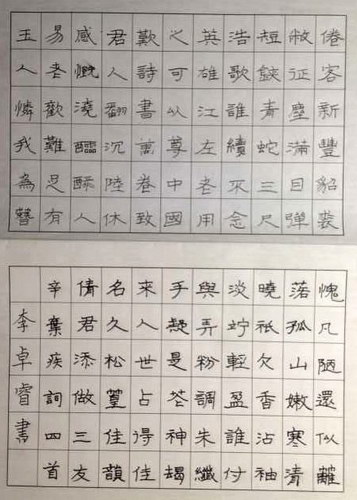 倦客新豐貂裘
敝征塵滿目彈
短鋏青蛇三尺
浩歌誰續不念
英雄江左老用
之可以尊中國
歎詩書萬卷致
君人翻沉陸休
感慨澆醽醁人
易老歡難足有
玉人憐我為簪
愧凡陋還似離
落孤山嫩寒清
曉祇欠香沾袖
淡竚輕盈誰付
與弄粉調朱纖
手疑是花神朅
來人世占得佳
名久松篁佳韻
倩君添做三友
辛棄疾詞四首
李卓睿書